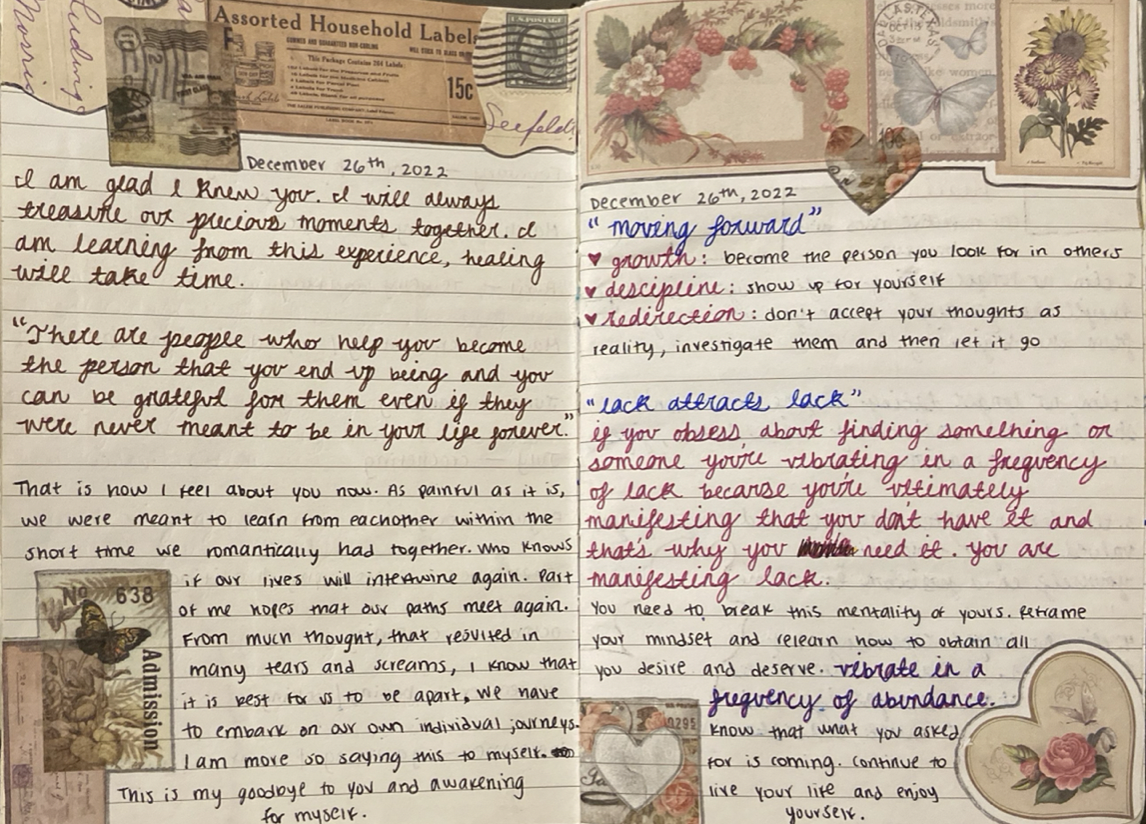 Assorted Household Labels
GUMMED AND GUARANTEED NON-CURLING
This Package Contains 204 Labels
15c
U.S. POSTAGE
Seefeld
December 26th, 2022
I am glad I knew you. I will always
treasure our precious moments together. I
am learning from this experience, healing
will take time.
"There are people who help you become
the person that you end up being and you
can be grateful for them even if they
were never meant to be in your life forever."
That is how I feel about you now. As painful as it is,
we were meant to learn from eachother within the
short time we romantically had together. Who knows
if our lives will intertwine again. Part
of me hopes that our paths meet again.
From much thought, that resulted in
many tears and screams, I know that
it is best for us to be apart, we have
to embark on our own individual journeys.
I am more so saying this to myself.
This is my goodbye to you and awakening
for myself.
No 638
Admission
December 26th, 2022
"moving forward"
growth: become the person you look for in others
descipline: show up for yourself
redirection: don't accept your thoughts as
reality, investigate them and then let it go
"lack attracts lack"
if you obsess about finding something or
someone you're vibrating in a frequency
of lack because you're ultimately
manifesting that you don't have it and
that's why you need it. you are
manifesting lack.
You need to break this mentality of yours. Reframe
your mindset and relearn how to obtain all
you desire and deserve. vibrate in a
frequency of abundance.
Know that what you asked
for is coming. continue to
live your life and enjoy
yourself.
0295